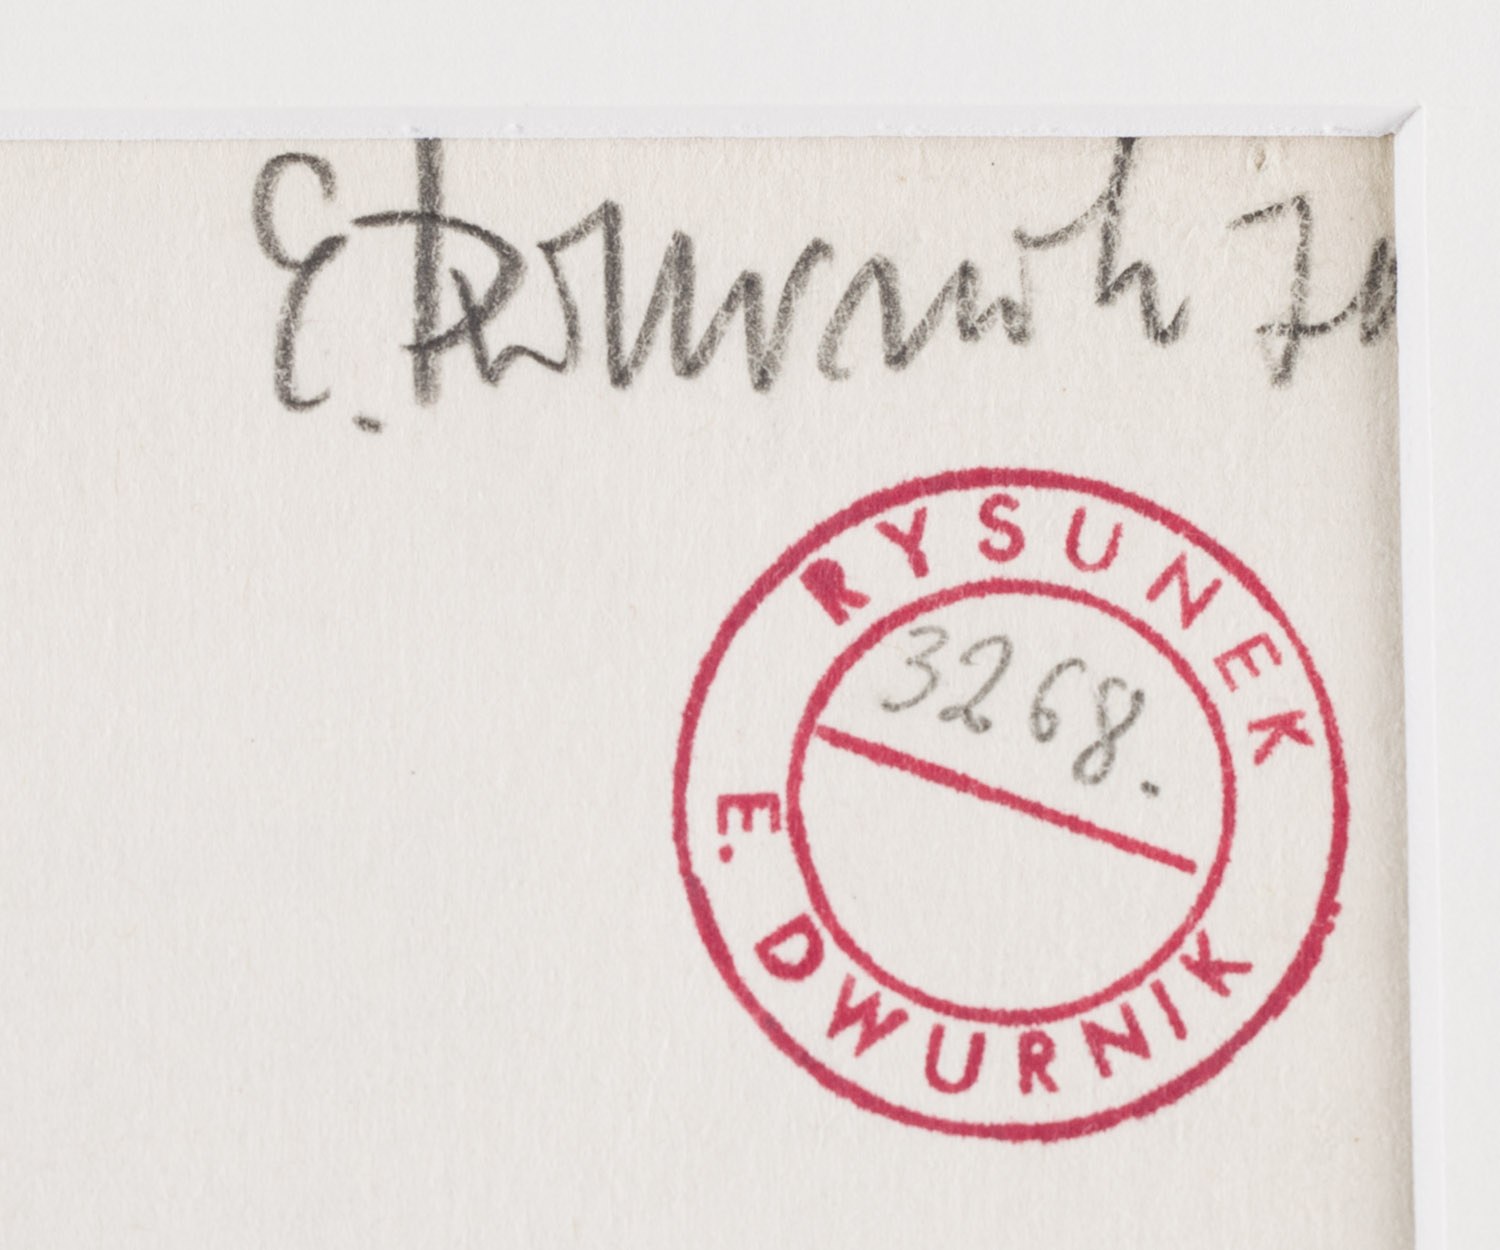 E. Dwurnik
RYSUNEK
3268.
E. DWURNIK